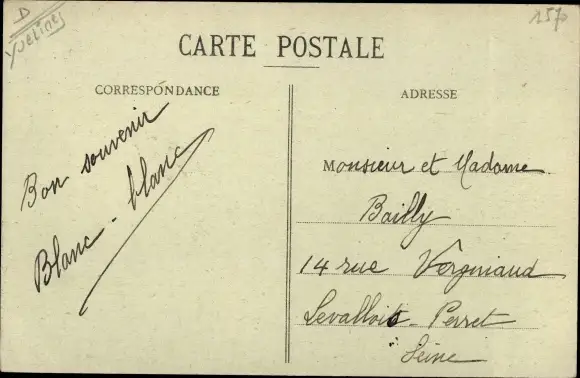 D
Yvelines
1570
CARTE POSTALE
CORRESPONDANCE
ADRESSE
Bon souvenir
Blanc-blanc
Monsieur et Madame
Bailly
14 rue Vergniaud
Levallois-Perret
Seine